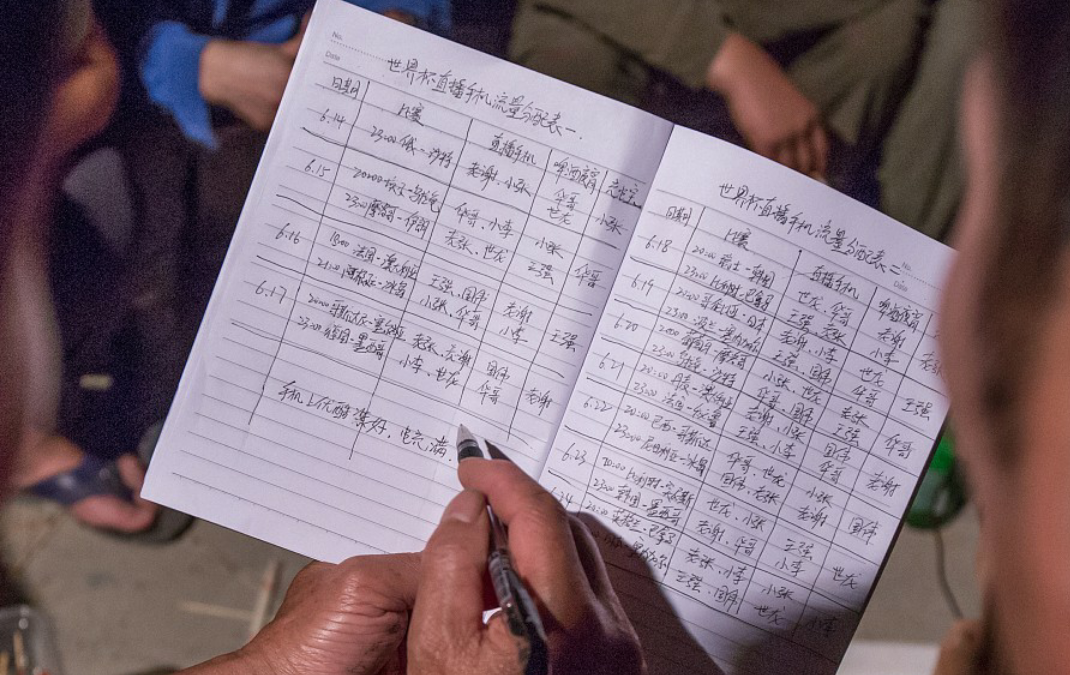 No.
Date
世界杯直播手机流量分配表一.
日期 比赛 直播手机 啤酒夜宵 充电宝
6.14 23:00 俄-沙特 老谢、小张 华哥 世龙 小张
6.15 20:00 埃及-乌拉圭 华哥、小李 小张 华哥
23:00 摩洛哥-伊朗 老张、世龙 王强
6.16 18:00 法国-澳大利亚 王强、国伟 老谢 王强
21:00 阿根廷-冰岛 小张、华哥 小李
6.17 20:00 哥斯达-塞尔维亚 老张、老谢 国伟 老谢
23:00 德国-墨西哥 小李、世龙 华哥
手机上优酷集好,电充满.
No.
Date
世界杯直播手机流量分配表二
日期 比赛 直播手机 啤酒夜宵
6.18 20:00 瑞士-韩国 世龙、华哥 老谢
23:00 比利时-巴拿马 王强、老张 小李
6.19 20:00 哥伦比亚-日本 老谢、小李 世龙 王强
23:00 王强、国伟 华哥
6.20 20:00 葡萄牙-摩洛哥 小张、世龙 老张 华哥
23:00 -沙特 华哥、国伟 王强
6.21 20:00 丹麦-澳 老谢、小张 国伟 老谢
23:00 法国- 王强、小李 华哥
6.22 20:00 巴西-哥斯达 华哥、世龙 小张 国伟
23:00 尼日利亚-冰岛 国伟、老张 老谢
6.23 20:00 比利时-突尼斯 世龙、小张 王强 世龙
23:00 韩国-墨西哥 老谢、华哥 小李
6.24 20:00 英格兰-巴拿马 老张、小李 小张 小李
王强、国伟 世龙